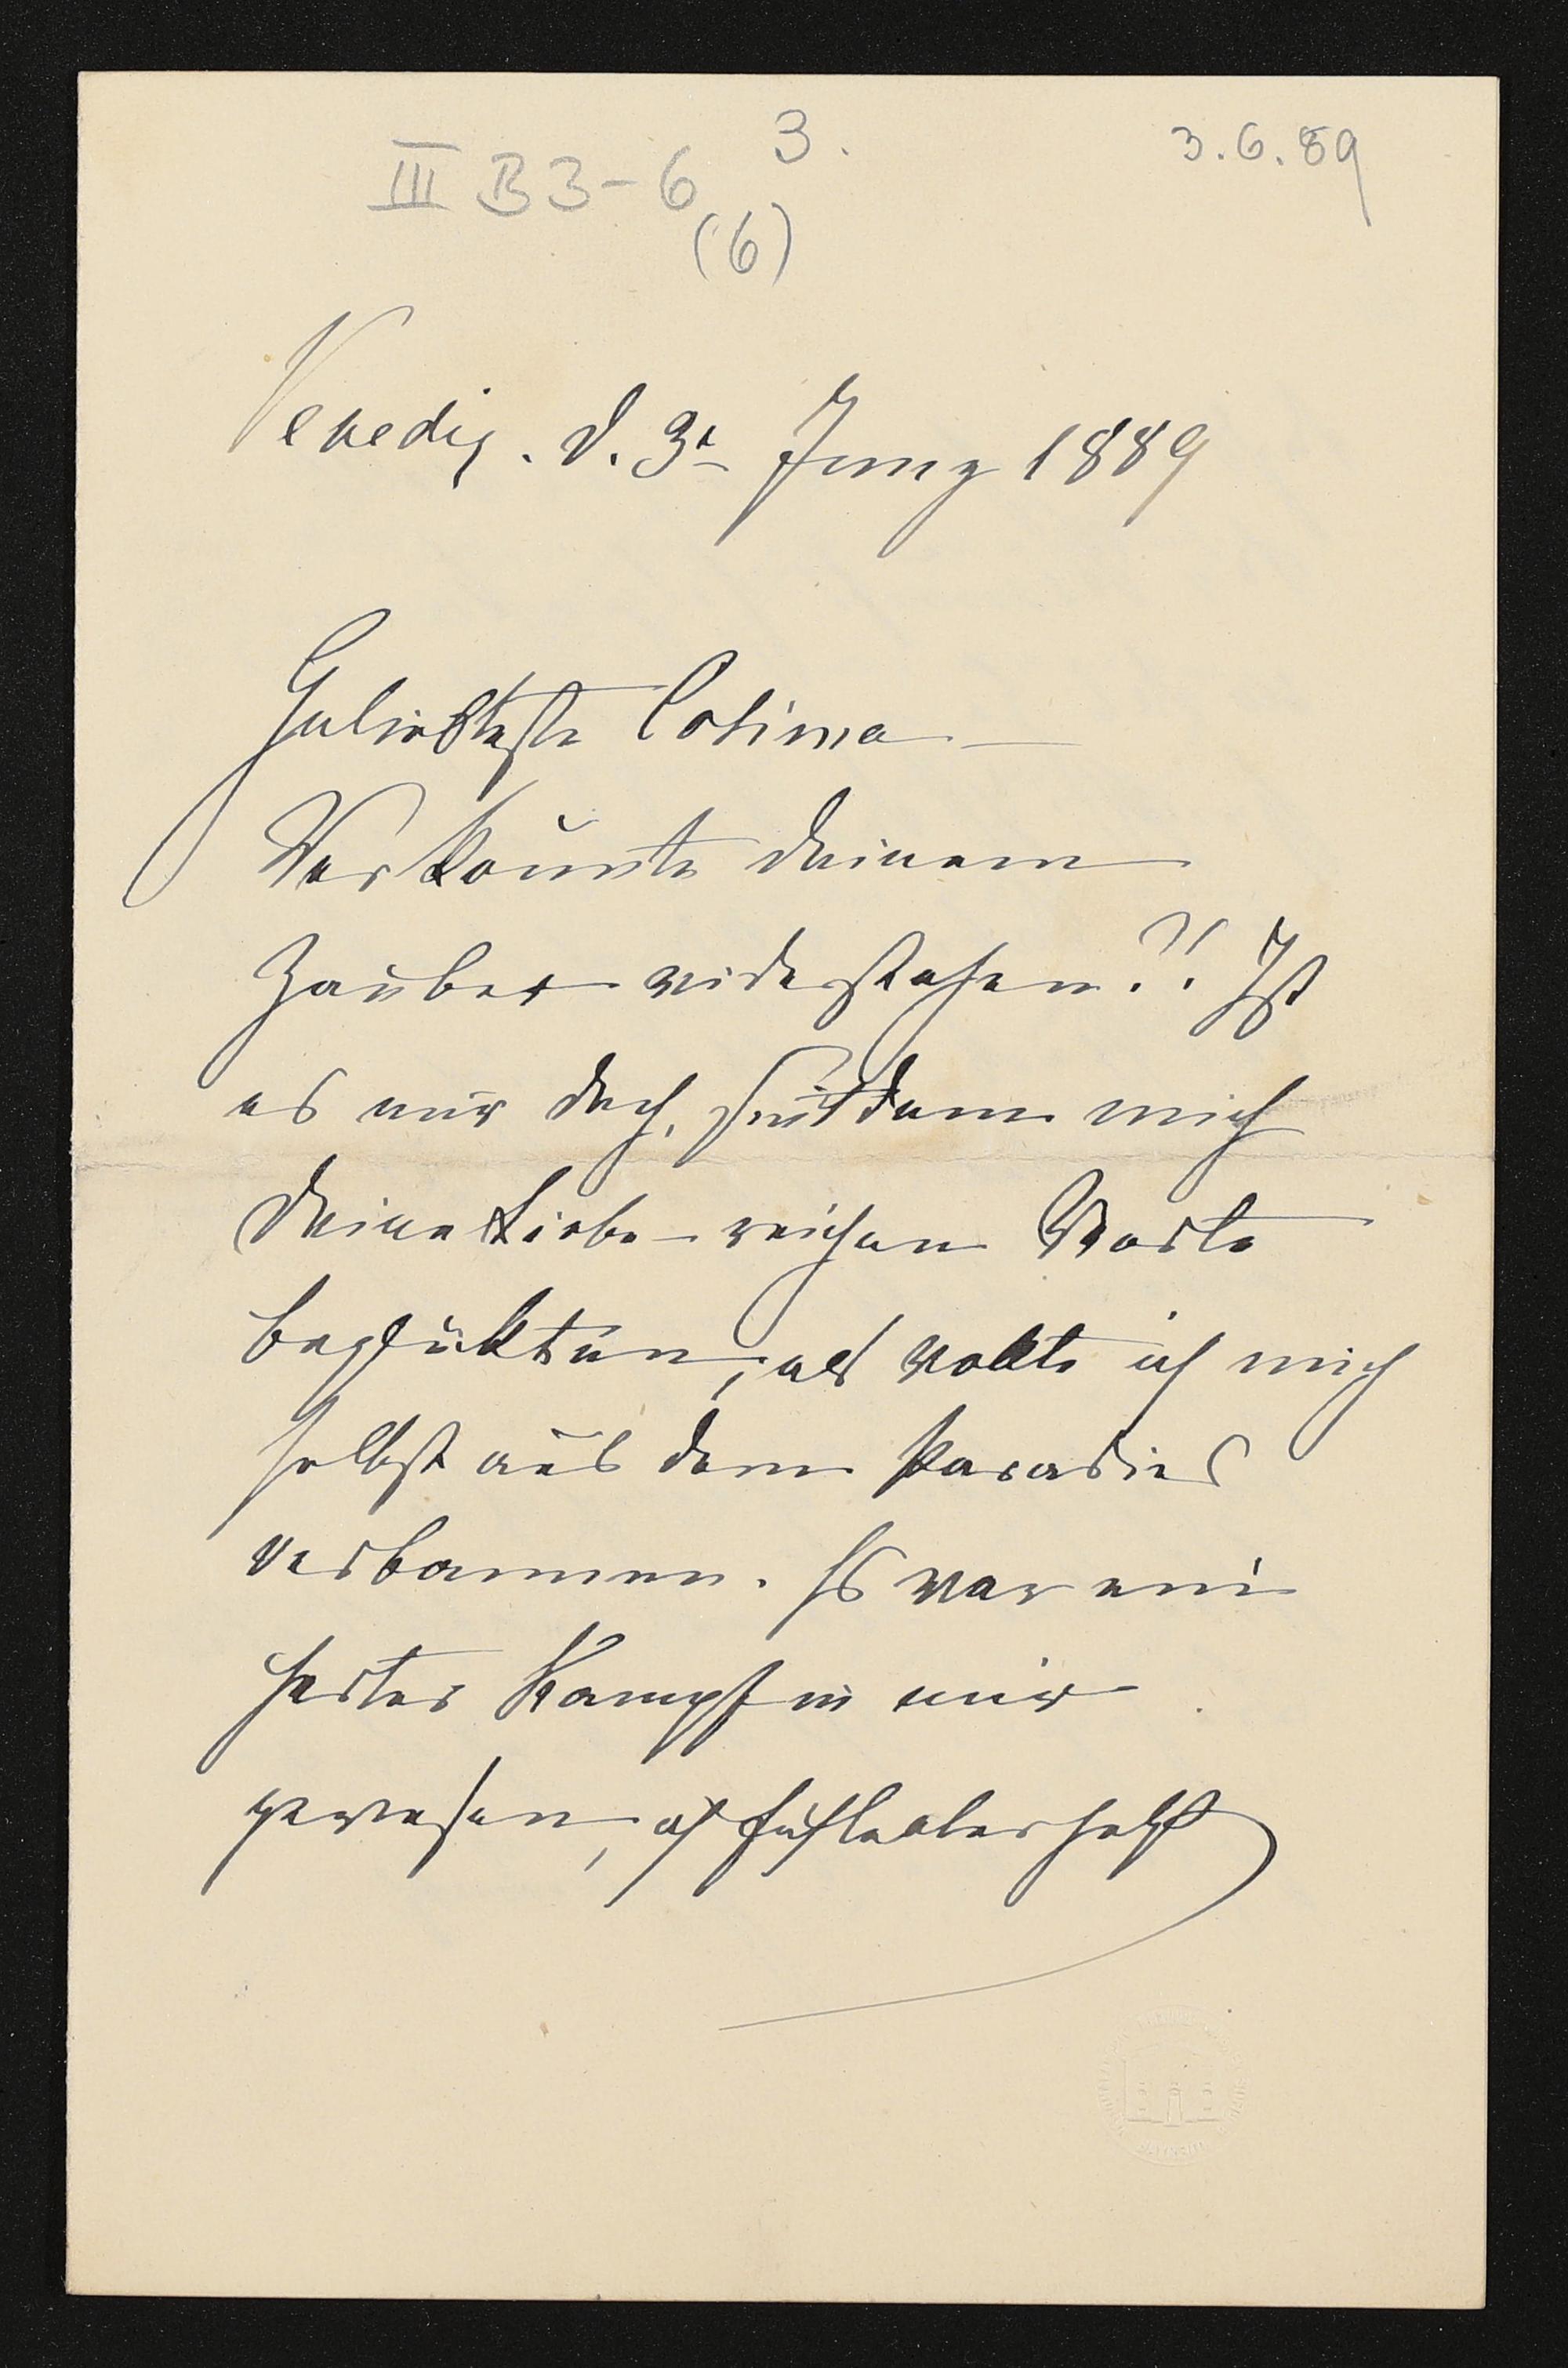 III B 3-6
3.
(6)
3.6.89
Venedig. d. 3t Juny 1889
Geliebteste Cosima
Wer könnte deinem
Zauber widerstehen?! Ist
es mir doch, seitdem mich
deine Liebe-reichen Worte
beglükten, als wollte ich mich
selbst aus dem Paradies
verbannen. Es war ein
harter Kampf in mir
gewesen, ich fühle aber selbst